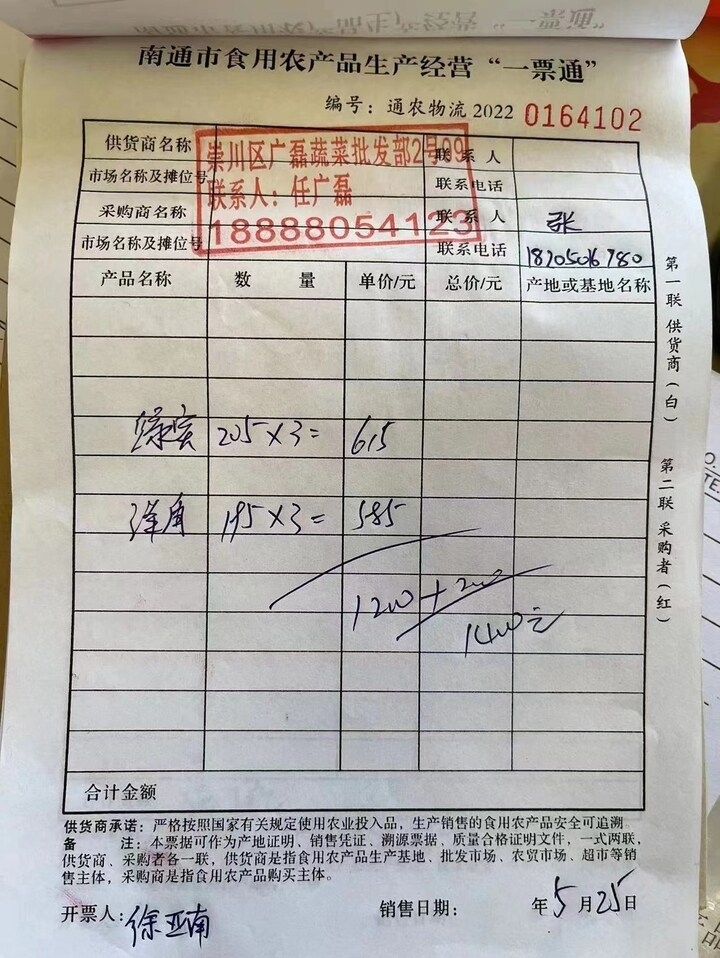 南通市食用农产品生产经营“一票通”
编号：通农物流2022 0164102
供货商名称 联系人
崇川区广磊蔬菜批发部2号99
市场名称及摊位号 联系电话
联系人：任广磊
采购商名称 联系人 张
18888054123
市场名称及摊位号 联系电话
产品名称 数量 单价/元 总价/元 产地或基地名称
205×3= 615
洋角 195×3= 585
1200+200
1400元
合计金额
供货商承诺：严格按照国家有关规定使用农业投入品，生产销售的食用农产品安全可追溯
备注：本票据可作为产地证明、销售凭证、溯源票据、质量合格证明文件，一式两联，
供货商、采购者各一联，供货商是指食用农产品生产基地、批发市场、农贸市场、超市等销
售主体，采购商是指食用农产品购买主体。
开票人：徐亚南 销售日期： 年5月25日
第一联 供货商（白）
第二联 采购者（红）